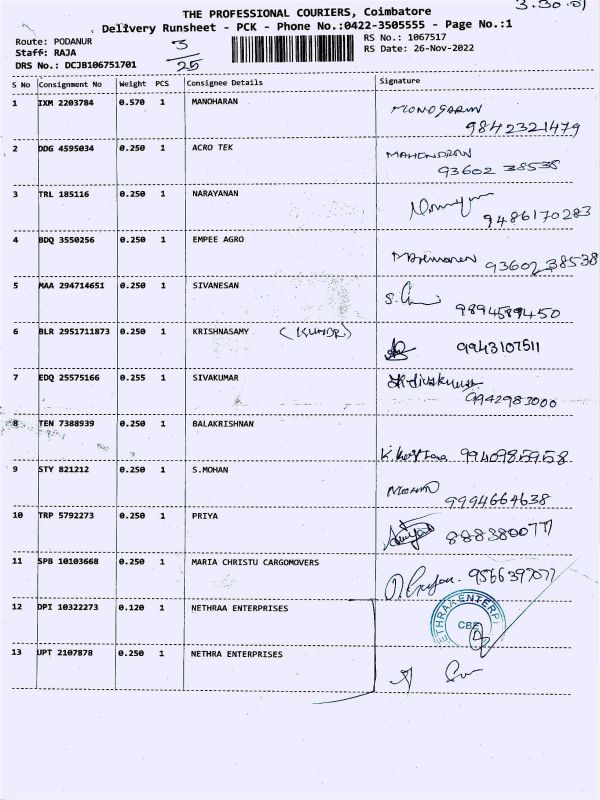 3.30.01
THE PROFESSIONAL COURIERS, Coimbatore
Delivery Runsheet - PCK - Phone No.:0422-3505555 - Page No.:1
Route: PODANUR
Staff: RAJA
DRS No.: DCJB106751701
3
25
RS No.: 1067517
RS Date: 26-Nov-2022
S No Consignment No Weight PCS Consignee Details Signature
1 IXM 2203784 0.570 1 MANOHARAN
9842321479
2 DDG 4595034 0.250 1 ACRO TEK MAHENDRAN
93602 38538
3 TRL 185116 0.250 1 NARAYANAN
9486170283
4 BDQ 3550256 0.250 1 EMPEE AGRO
93602 38538
5 MAA 294714651 0.250 1 SIVANESAN
9894589450
6 BLR 2951711873 0.250 1 KRISHNASAMY 9943107511
7 EDQ 25575166 0.255 1 SIVAKUMAR
9942983000
8 TEN 7388939 0.250 1 BALAKRISHNAN
9940985958
9 STY 821212 0.250 1 S.MOHAN MOHAN
9994664638
10 TRP 5792273 0.250 1 PRIYA
8883800777
11 SPB 10103668 0.250 1 MARIA CHRISTU CARGOMOVERS
9566397077
12 DPI 10322273 0.120 1 NETHRAA ENTERPRISES
ETHRAA ENTERPRI
CBE
13 UPT 2107878 0.250 1 NETHRA ENTERPRISES